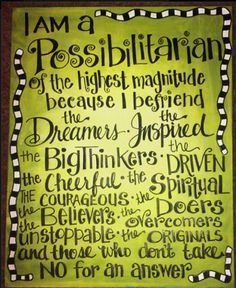 I AM a
Possibilitarian
of the highest magnitude
because I befriend
the Dreamers · the Inspired
the BigThinkers · the DRIVEN
the Cheerful · the Spiritual
THE COURAGEOUS · the Doers
the Believers · the Overcomers
the unstoppable · the ORIGINALS
and those who don't take
NO for an answer